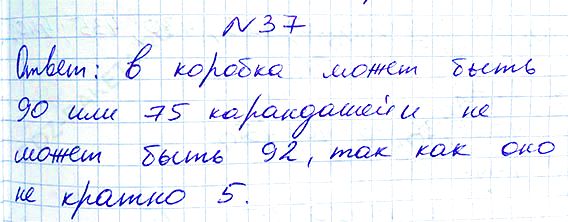 N37
Ответ: в коробка может быть
90 или 75 карандашей и не
может быть 92, так как оно
не кратно 5.